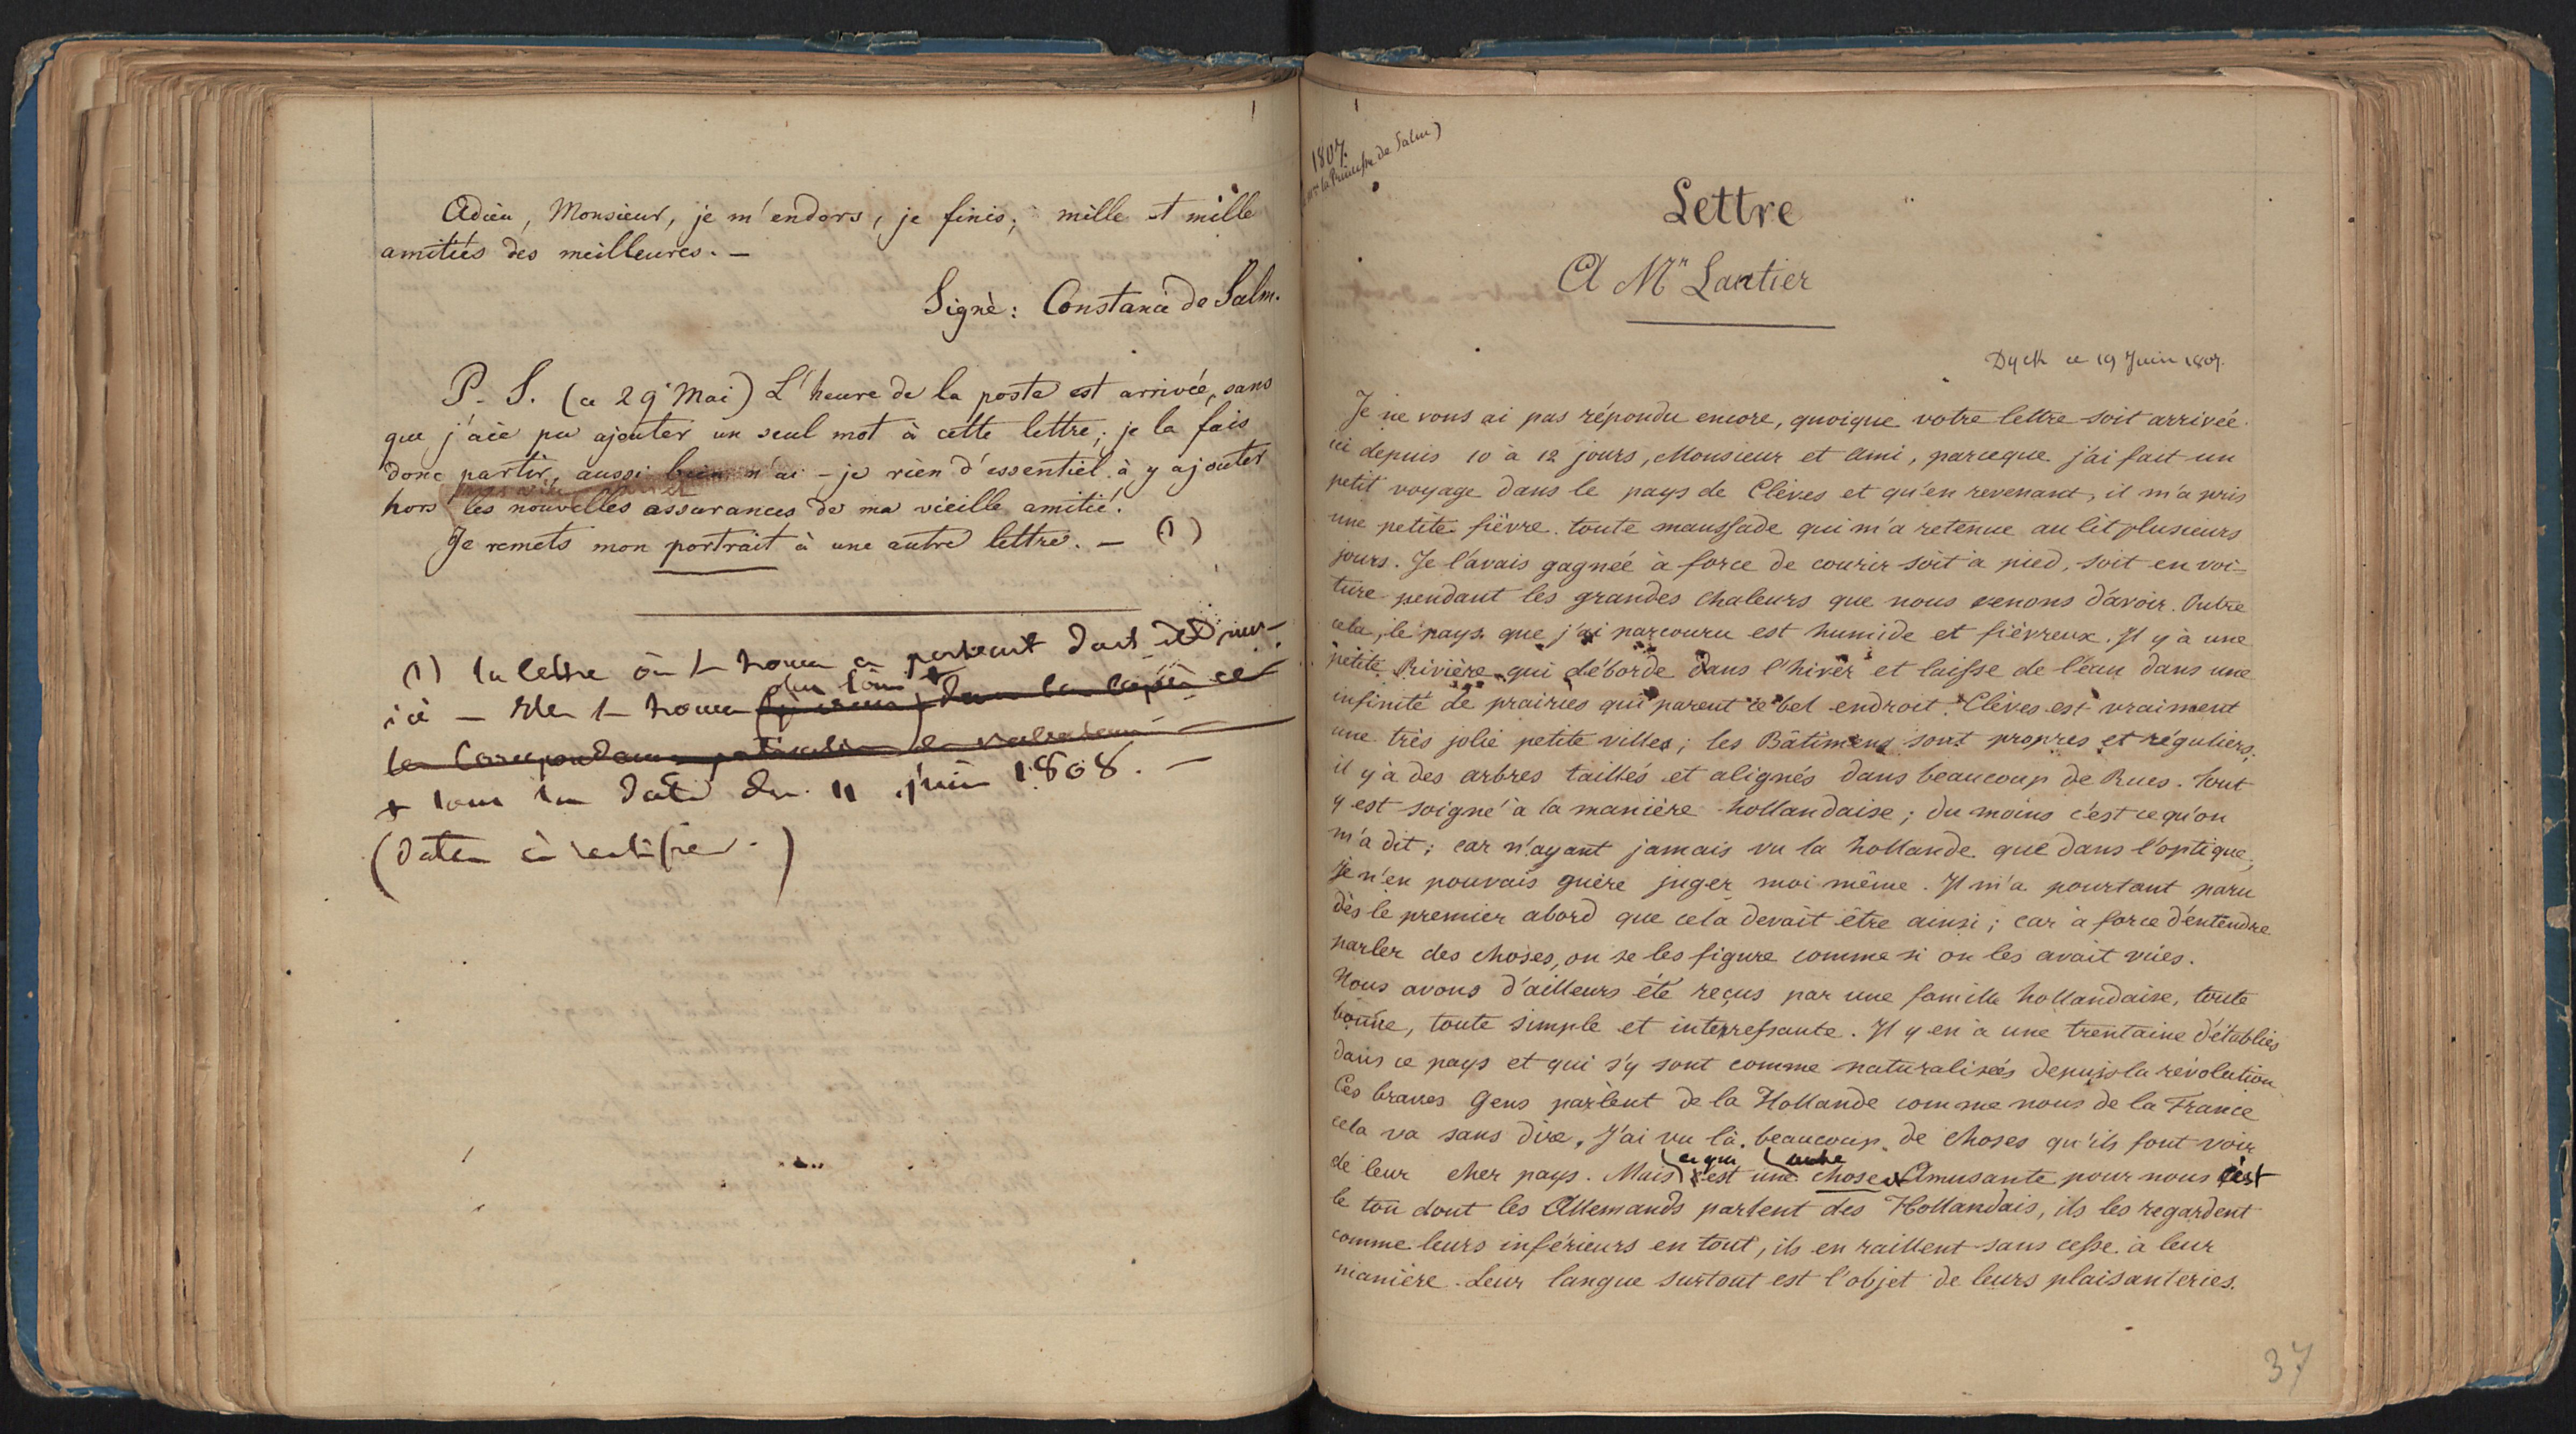 Adieu, Monsieur, je m'endors, je finis; mille et mille
amitiés des meilleures. —
Signé: Constance de Salm.
P. S. (ce 29 Mai) L'heure de la poste est arrivée, sans
que j'aie pu ajouter un seul mot à cette lettre; je la fais
donc partir, aussi bien n'ai-je rien d'essentiel à y ajouter
hors les nouvelles assurances de ma vieille amitié.
Je remets mon portrait à une autre lettre. — (1)
(1) la lettre où se trouve ce portrait doit être
plus loin +
ici — Elle se trouve dans la copie de
la Correspondance
+ sous la date du 11 juin 1808. —
(dates à rectifier.)
1807.
Mme la Princesse de Salm)
Lettre
A Mr Lantier
Dyck ce 19 Juin 1807.
Je ne vous ai pas répondu encore, quoique votre lettre soit arrivée
ici depuis 10 à 12 jours, Monsieur et Ami, parceque j'ai fait un
petit voyage dans le pays de Clèves et qu'en revenant, il m'a pris
une petite fièvre toute maussade qui m'a retenue au lit plusieurs
jours. Je l'avais gagnée à force de courir soit à pied, soit en voi-
ture pendant les grandes chaleurs que nous venons d'avoir. Outre
cela, le pays que j'ai parcouru est humide et fièvreux. Il y à une
petite Rivière qui déborde dans l'hiver et laisse de l'eau dans une
infinité de prairies qui parent ce bel endroit. Clèves est vraiment
une très jolie petite ville; les Bâtimens sont propres et réguliers;
il y à des arbres taillés et alignés dans beaucoup de Rues. Tout
y est soigné à la manière hollandaise; du moins c'est ce qu'on
m'a dit; car n'ayant jamais vu la hollande que dans l'optique,
Je n'en pouvais guère juger moi même. Il m'a pourtant paru
dès le premier abord que cela devait être ainsi; car à force d'entendre
parler des choses, on se les figure comme si on les avait vües.
Nous avons d'ailleurs été reçus par une famille hollandaise, toute
bonne, toute simple et interressante. Il y en à une trentaine d'établies
dans ce pays et qui s'y sont comme naturalisées depuis la révolution
Ces braves Gens parlent de la Hollande comme nous de la France
cela va sans dire, J'ai vu là beaucoup de choses qu'ils font voir
ce qui autre
de leur cher pays. Mais est une chose Amusante pour nous c'est
le ton dont les Allemands parlent des Hollandais, ils les regardent
comme leurs inférieurs en tout, ils en raillent sans cesse à leur
manière. Leur langue surtout est l'objet de leurs plaisanteries.
37